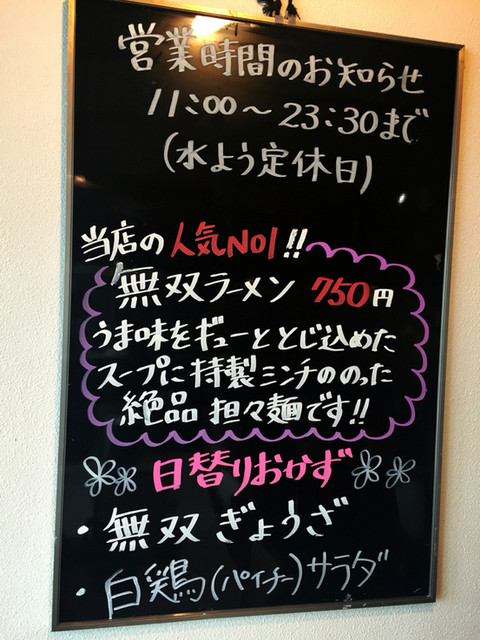 営業時間のお知らせ
11:00～23:30まで
(水よう定休日)
当店の人気NO1!!
無双ラーメン 750円
うま味をギューととじ込めた
スープに特製ミンチののった
絶品 担々麺です!!
日替りおかず
・無双ぎょうざ
・白鶏(パイチー)サラダ